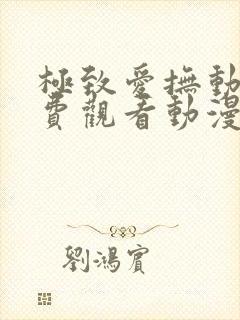 極致愛撫動
費觀看動漫
劉鴻賓